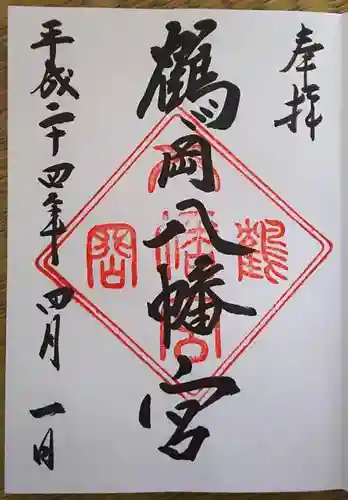 奉拝
鶴岡八幡宮
平成二十四年四月一日
鶴
八幡宮
岡